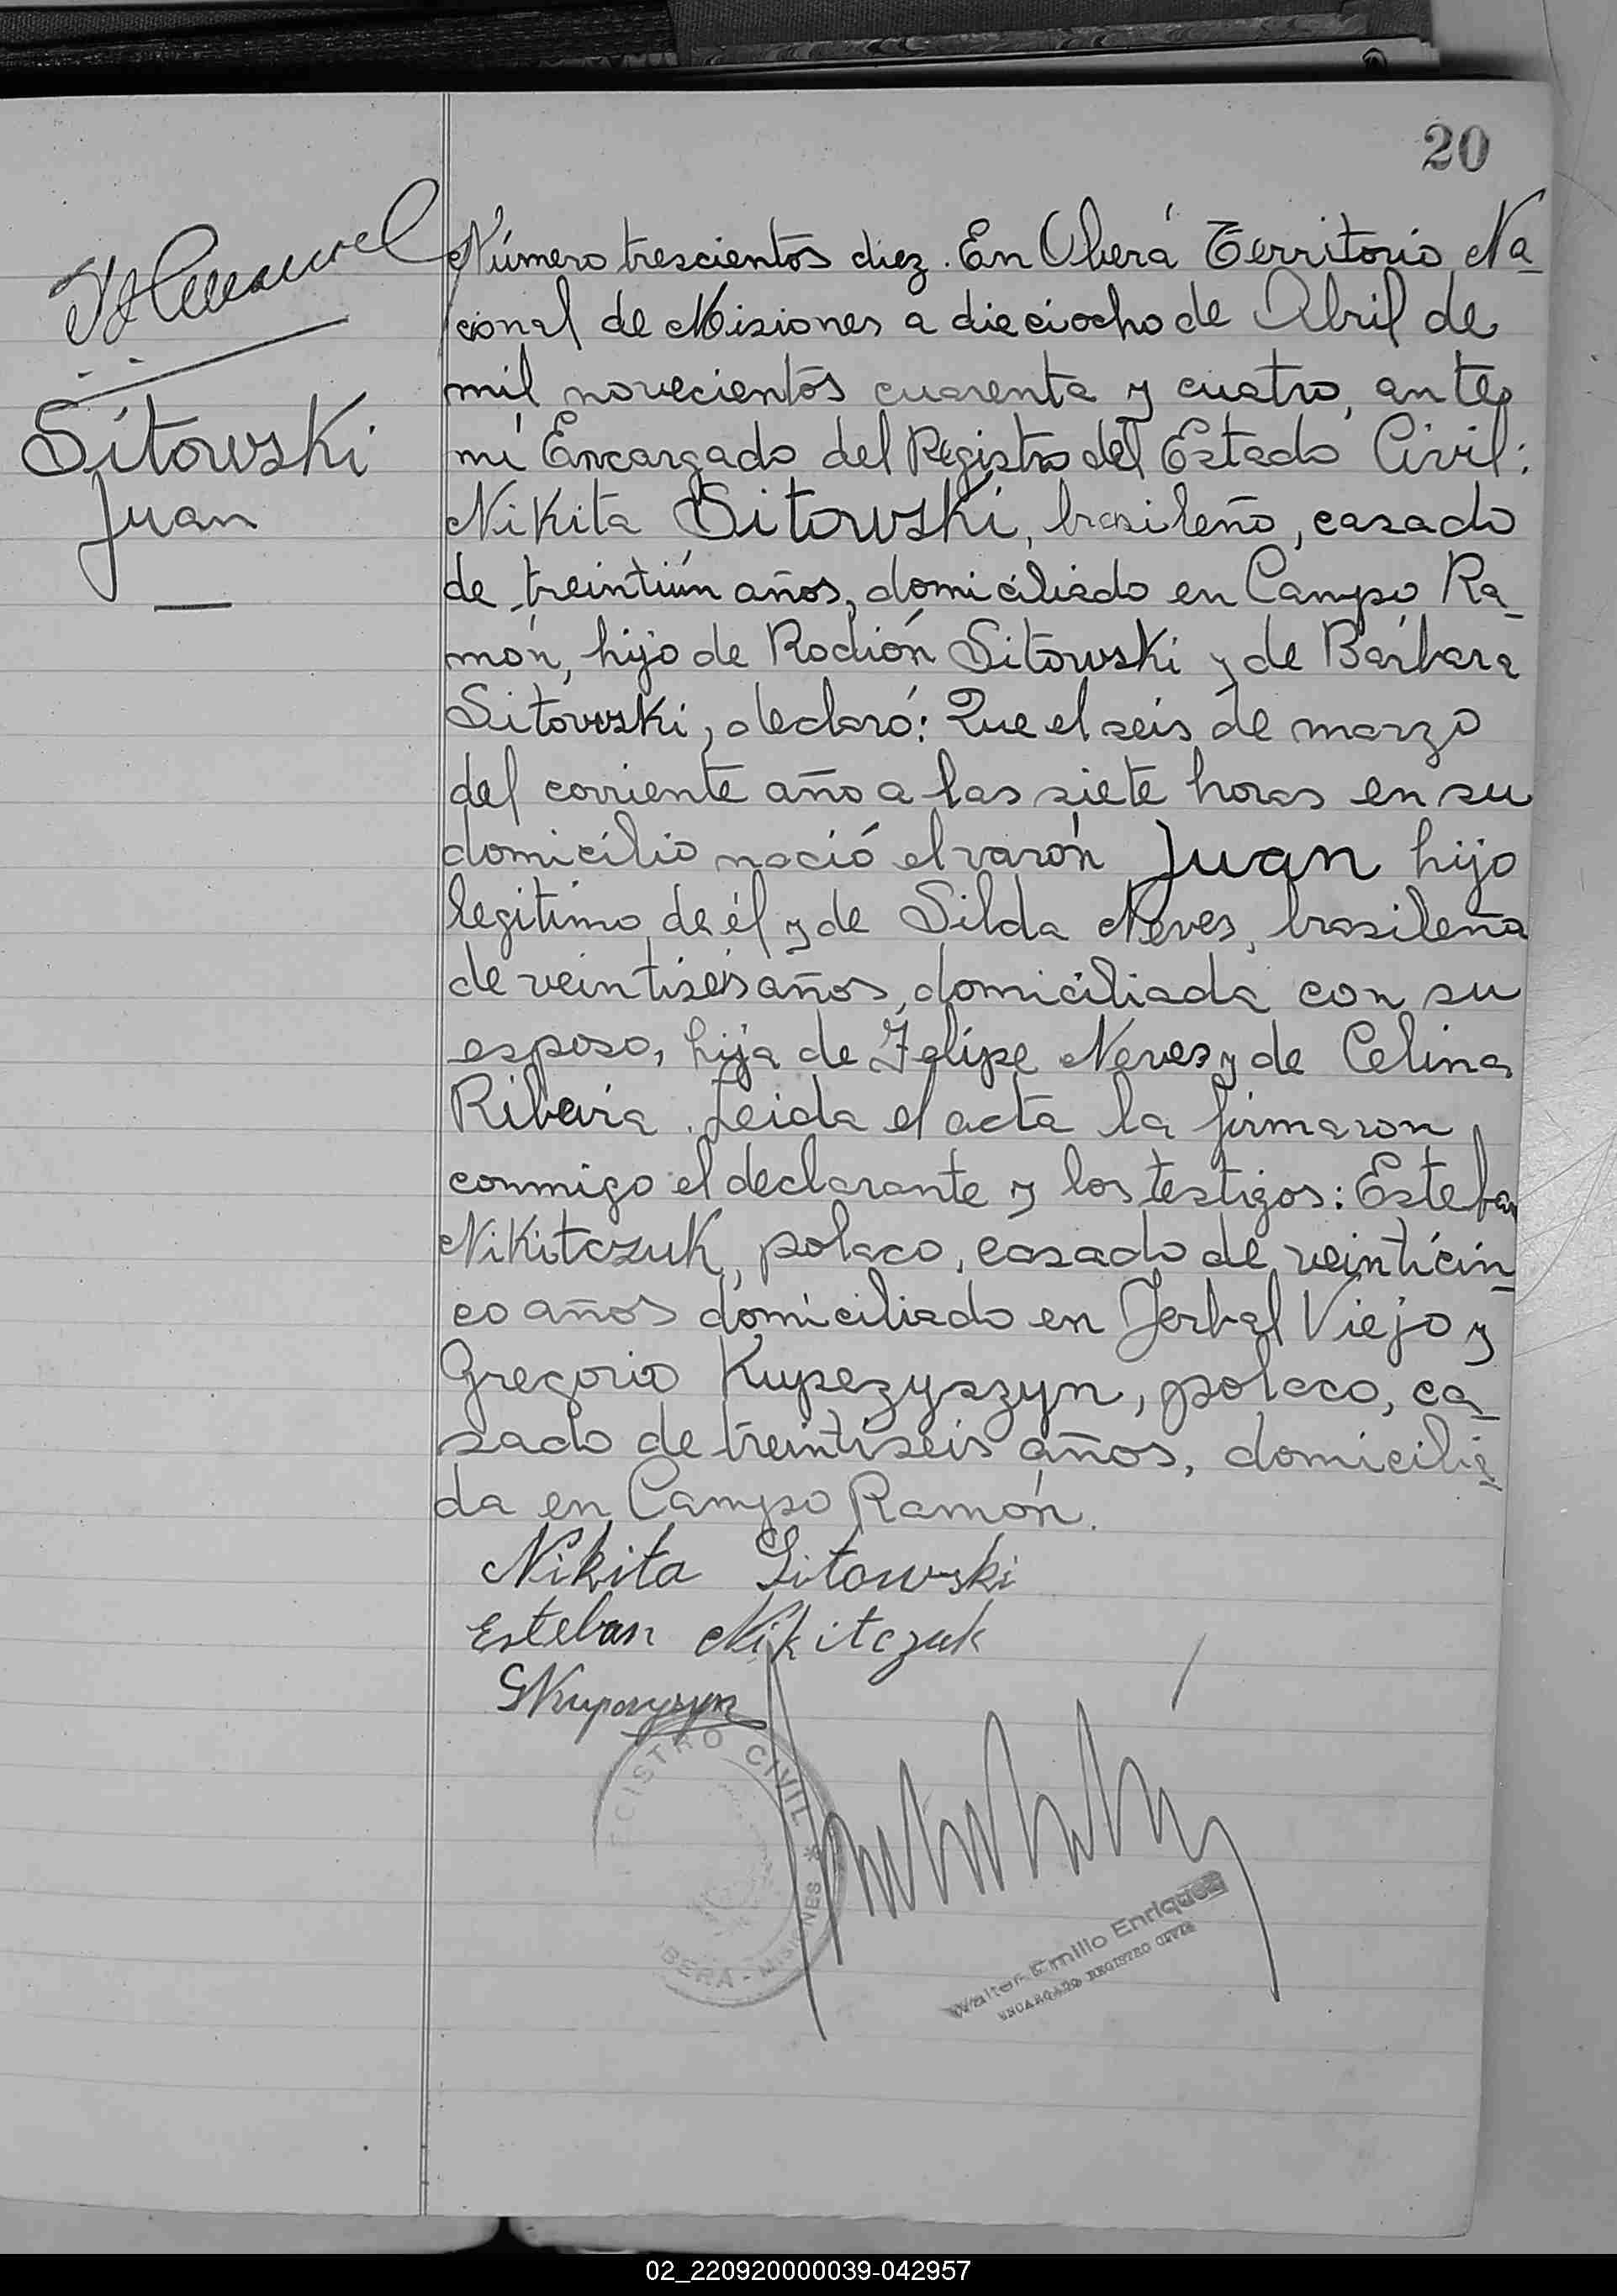 20
Número trescientos diez. En Oberá Territorio Na-
cional de Misiones a dieciocho de Abril de
mil novecientos cuarenta y cuatro, ante
mí Encargado del Registro del Estado Civil:
Nikita Sitowski, brasileño, casado
de treintiún años, domiciliado en Campo Ra-
món, hijo de Rodión Sitowski y de Bárbara
Sitowski, declaró: Que el seis de marzo
del corriente año a las siete horas en su
domicilio nació el varón Juan hijo
legitimo de él y de Silda Neves, brasileña
de veintiseis años, domiciliada con su
esposo, hija de Felipe Neves y de Celina
Ribeira. Leida el acta la firmaron
conmigo el declarante y los testigos: Esteban
Nikitczuk, polaco, casado de veinticin-
co años domiciliado en Yerbal Viejo y
Gregorio Kupczyszyn, polaco, ca-
sado de treintiseis años, domicilia-
da en Campo Ramón.
Sitowski
Juan
Nikita Sitowski
Esteban Nikitczuk
REGISTRO CIVIL *
OBERA - MISIONES
Walter Emilio Enriquez
ENCARGADO REGISTRO CIVIL
02_220920000039-042957